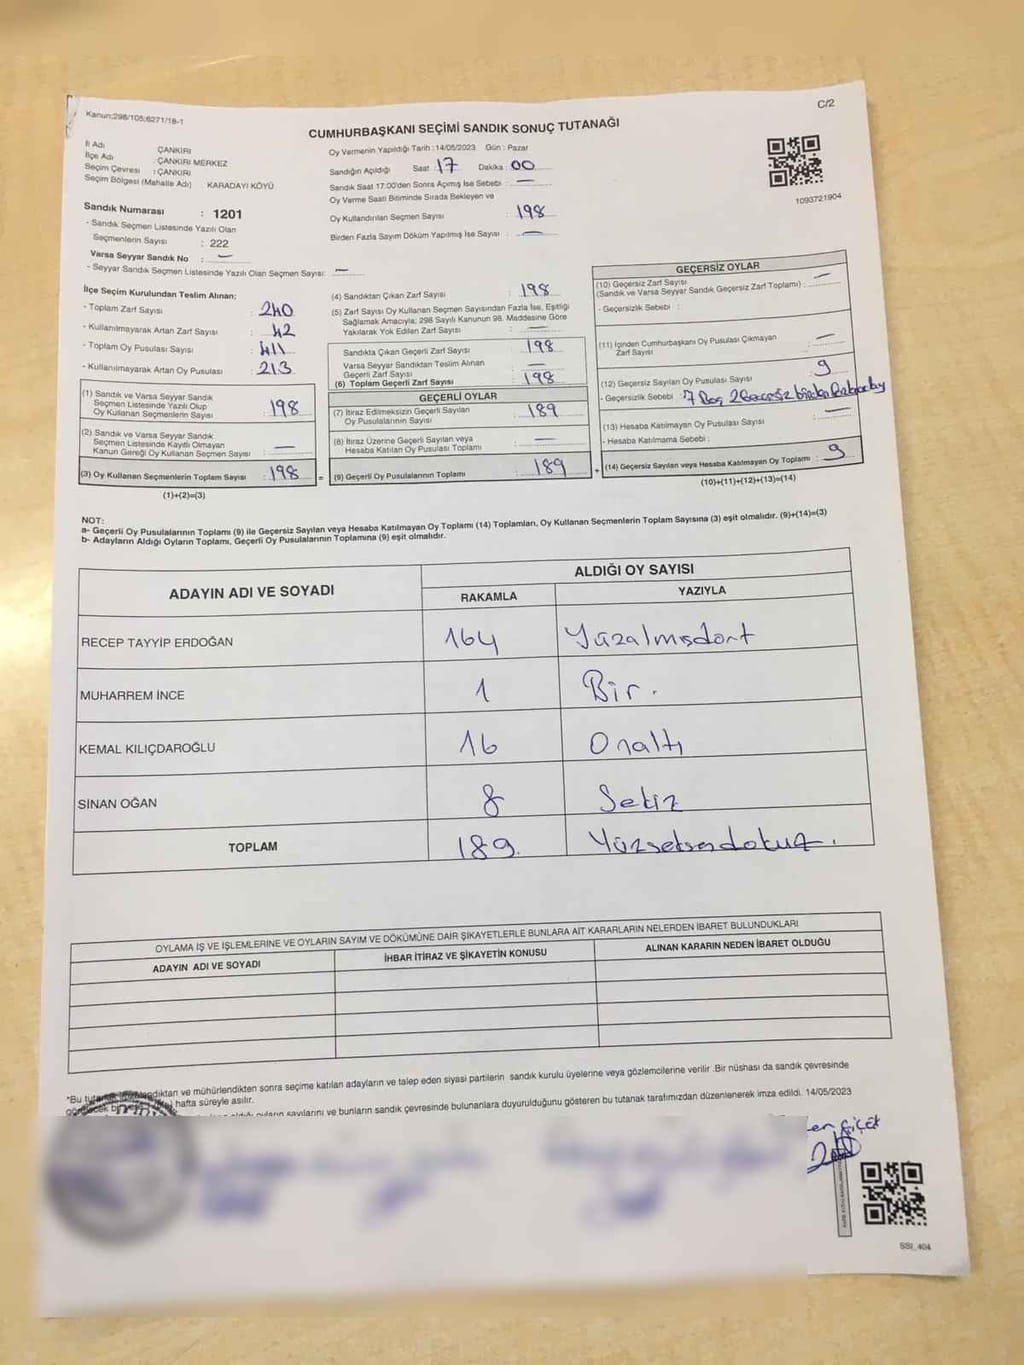 Kanun:298/105;6271/18-1
C/2
CUMHURBAŞKANI SEÇİMİ SANDIK SONUÇ TUTANAĞI
İl Adı : ÇANKIRI
İlçe Adı : ÇANKIRI MERKEZ
Seçim Çevresi : ÇANKIRI
Seçim Bölgesi (Mahalle Adı) KARADAYI KÖYÜ
Sandık Numarası : 1201
- Sandık Seçmen Listesinde Yazılı Olan
Seçmenlerin Sayısı : 222
Varsa Seyyar Sandık No : —
- Seyyar Sandık Listesinde Yazılı Olan Seçmen Sayısı: —
Oy Vermenin Yapıldığı Tarih :14/05/2023 Gün : Pazar
Sandığın Açıldığı Saat : 17 Dakika : 00
Sandık Saat 17.00'den Sonra Açımış İse Sebebi : —
Oy Verme Saati Bitiminde Sırada Bekleyen ve
Oy Kullandırılan Seçmen Sayısı : 198
Birden Fazla Sayım Döküm Yapılmış İse Sayısı : —
1093721904
İlçe Seçim Kurulundan Teslim Alınan:
- Toplam Zarf Sayısı : 240
- Kullanılmayarak Artan Zarf Sayısı : 42
- Toplam Oy Pusulası Sayısı : 411
- Kullanılmayarak Artan Oy Pusulası : 213
(1) Sandık ve Varsa Seyyar Sandık
Seçmen Listesinde Yazılı Olup
Oy Kullanan Seçmenlerin Sayısı : 198
(2) Sandık ve Varsa Seyyar Sandık
Seçmen Listesinde Kayıtlı Olmayan
Kanun Gereği Oy Kullanan Seçmen Sayısı : —
(3) Oy Kullanan Seçmenlerin Toplam Sayısı : 198
(1)+(2)=(3)
=
(4) Sandıktan Çıkan Zarf Sayısı : 198
(5) Zarf Sayısı Oy Kullanan Seçmen Sayısından Fazla İse, Eşitliği
Sağlamak Amacıyla; 298 Sayılı Kanunun 98. Maddesine Göre
Yakılarak Yok Edilen Zarf Sayısı : —
Sandıkta Çıkan Geçerli Zarf Sayısı : 198
Varsa Seyyar Sandıktan Teslim Alınan
Geçerli Zarf Sayısı : —
(6) Toplam Geçerli Zarf Sayısı : 198
GEÇERLİ OYLAR
(7) İtiraz Edilmeksizin Geçerli Sayılan
Oy Pusulasının Sayısı : 189
(8) İtiraz Üzerine Geçerli Sayılan veya
Hesaba Katılan Oy Pusulası Toplamı : —
(9) Geçerli Oy Pusulalarının Toplamı : 189
+
GEÇERSİZ OYLAR
(10) Geçersiz Zarf Sayısı
(Sandık ve Varsa Seyyar Sandık Geçersiz Zarf Toplamı) : —
- Geçersizlik Sebebi :
(11) İçinden Cumhurbaşkanı Oy Pusulası Çıkmayan
Zarf Sayısı : —
(12) Geçersiz Sayılan Oy Pusulası Sayısı : 9
- Geçersizlik Sebebi : 7 Boş 2 Geçersiz birden fazla oy
(13) Hesaba Katılmayan Oy Pusulası Sayısı : —
- Hesaba Katılmama Sebebi :
(14) Geçersiz Sayılan veya Hesaba Katılmayan Oy Toplamı : 9
(10)+(11)+(12)+(13)=(14)
NOT:
a- Geçerli Oy Pusulalarının Toplamı (9) ile Geçersiz Sayılan veya Hesaba Katılmayan Oy Toplamı (14) Toplamları, Oy Kullanan Seçmenlerin Toplam Sayısına (3) eşit olmalıdır. (9)+(14)=(3)
b- Adayların Aldığı Oyların Toplamı, Geçerli Oy Pusulalarının Toplamına (9) eşit olmalıdır.
ADAYIN ADI VE SOYADI
ALDIĞI OY SAYISI
RAKAMLA YAZIYLA
RECEP TAYYİP ERDOĞAN 164 Yüzalmışdört
MUHARREM İNCE 1 Bir.
KEMAL KILIÇDAROĞLU 16 Onaltı
SİNAN OĞAN 8 Sekiz
TOPLAM 189. Yüzseksendokuz.
OYLAMA İŞ VE İŞLEMLERİNE VE OYLARIN SAYIM VE DÖKÜMÜNE DAİR ŞİKAYETLERLE BUNLARA AİT KARARLARIN NELERDEN İBARET BULUNDUKLARI
ADAYIN ADI VE SOYADI İHBAR İTİRAZ VE ŞİKAYETİN KONUSU ALINAN KARARIN NEDEN İBARET OLDUĞU
*Bu ve mühürlendikten sonra seçime katılan adayların ve talep eden siyasi partilerin sandık kurulu üyelerine veya gözlemcilerine verilir .Bir nüshası da sandık çevresinde
hafta süreyle asılır.
oyların sayılarını ve bunların sandık çevresinde bulunanlara duyurulduğunu gösteren bu tutanak tarafımızdan düzenlenerek imza edildi. 14/05/2023
SSI_404